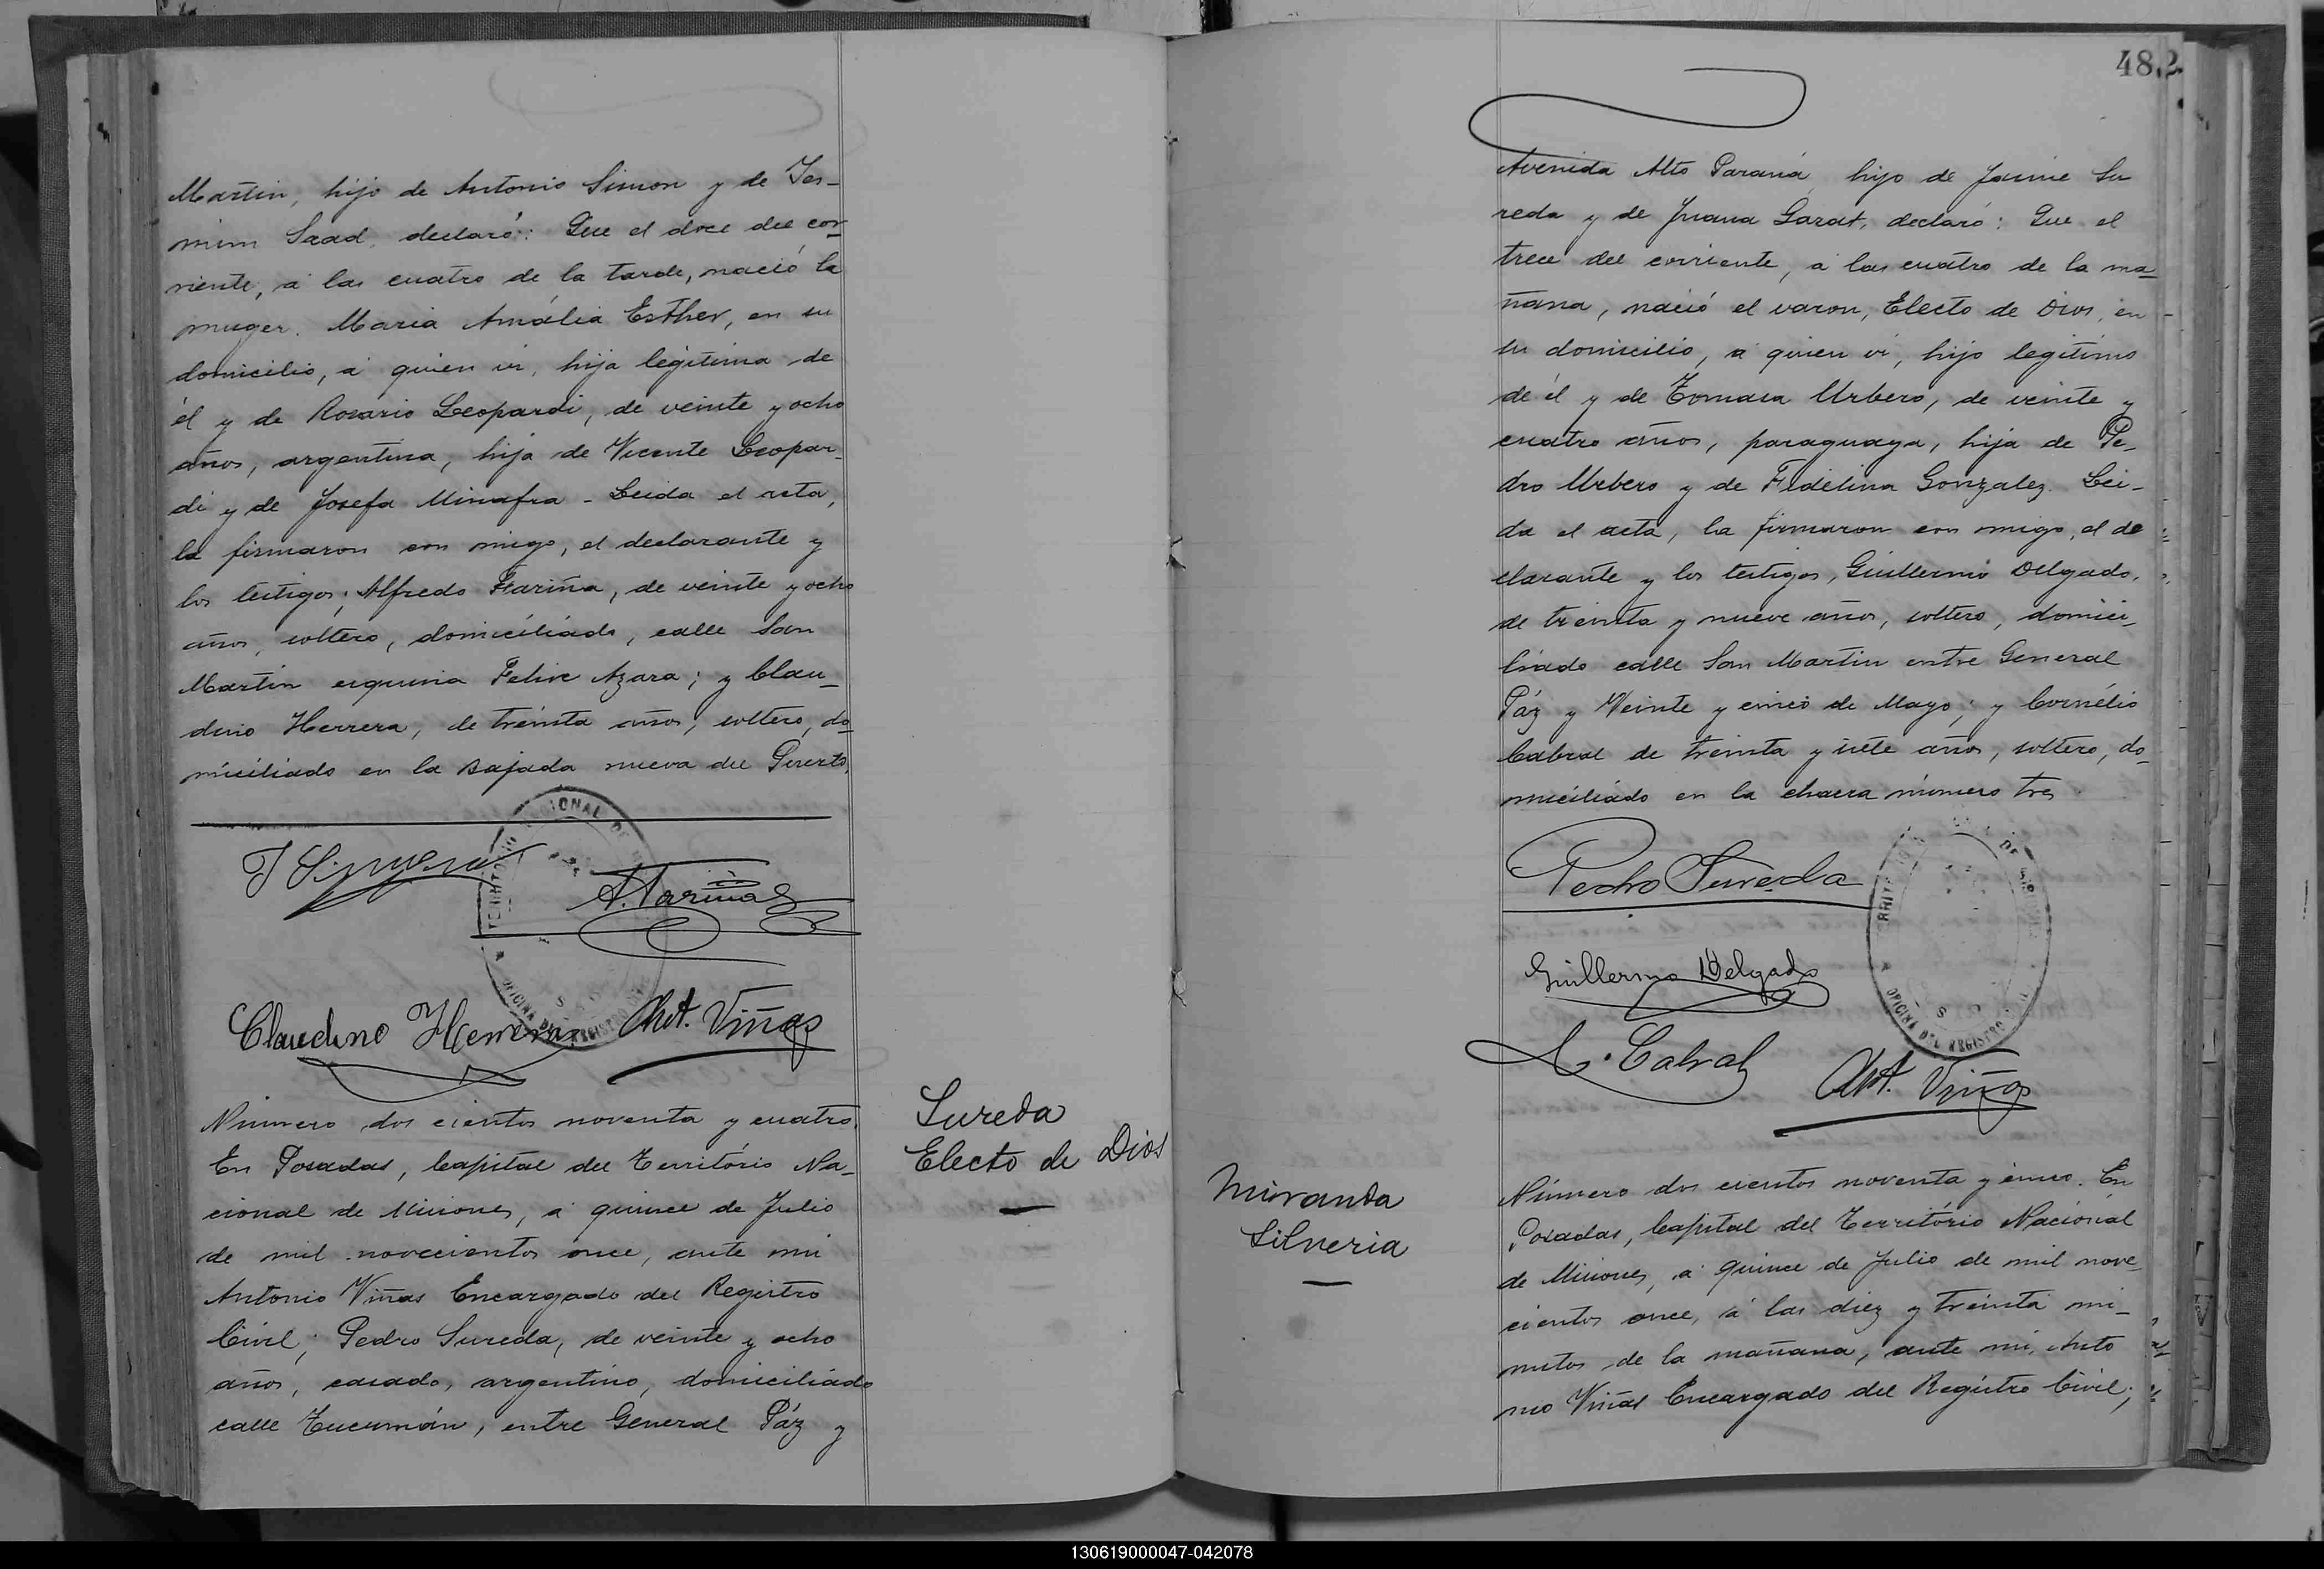 Martin, hijo de Antonio Simon y de Jas-
mim Saad, declaró: Que el doce del cor-
riente, á las cuatro de la tarde, nació la
muger. Maria Amália Esther, en su
domicilio, á quien vi, hija legitima de
él y de Rosario Leopardi, de veinte y ocho
años, argentina, hija de Vicente Leopar-
di y de Josefa Minafra - Leida el acta,
la firmaron con migo, el declarante y
los testigos; Alfredo Fariña, de veinte y ocho
años, soltero, domiciliado, calle San
Martin esquina Felix Azara; y Clau-
dino Herrera, de treinta años, soltero, do-
miciliado en la bajada nueva del Puerto.
TERRITORIO NACIONAL DE
OFICINA DEL REGISTRO
A. Fariña
Claudino Herrera Ant. Viñas
Número dos cientos noventa y cuatro.
En Posadas, Capital del Território Na-
cional de Misiones, á quince de Julio
de mil novecientos once, ante mi
Antonio Viñas Encargado del Registro
Civil; Pedro Sureda, de veinte y ocho
años, casado, argentino, domiciliado
calle Tucumán, entre General Páz y
Sureda
Electo de Dios
482
Avenida Alto Paraná, hijo de Jaime Su
reda y de Juana Garat, declaró: Que el
trece del corriente, á las cuatro de la ma-
ñana, nació el varon, Electo de Dios, en
su domicilio, á quien vi, hijo legitimo
de él y de Tomasa Urbero, de veinte y
cuatro años, paraguaya, hija de Pe-
dro Urbero y de Fidelina Gonzalez. Lei-
da el acta, la firmaron con migo, el de
clarante y los testigos, Guillermo Delgado,
de treinta y nueve años, soltero, domici-
liado calle San Martin entre General
Páz y Veinte y cinco de Mayo; y Cornélio
Cabral de treinta y siete años, soltero, do-
miciliado en la chacra número tres.
Pedro Sureda
Guillermo Delgado
C. Cabral
Ant. Viñas
OFICINA DEL REGISTRO
Miranda
Silveria
Número dos cientos noventa y cinco. En
Posadas, Capital del Território Nacional
de Misiones, á quince de Julio de mil nove-
cientos once, á las diez y treinta mi-
nutos de la mañana, ante mi, Anto
nio Viñas Encargado del Registro Civil;
130619000047-042078